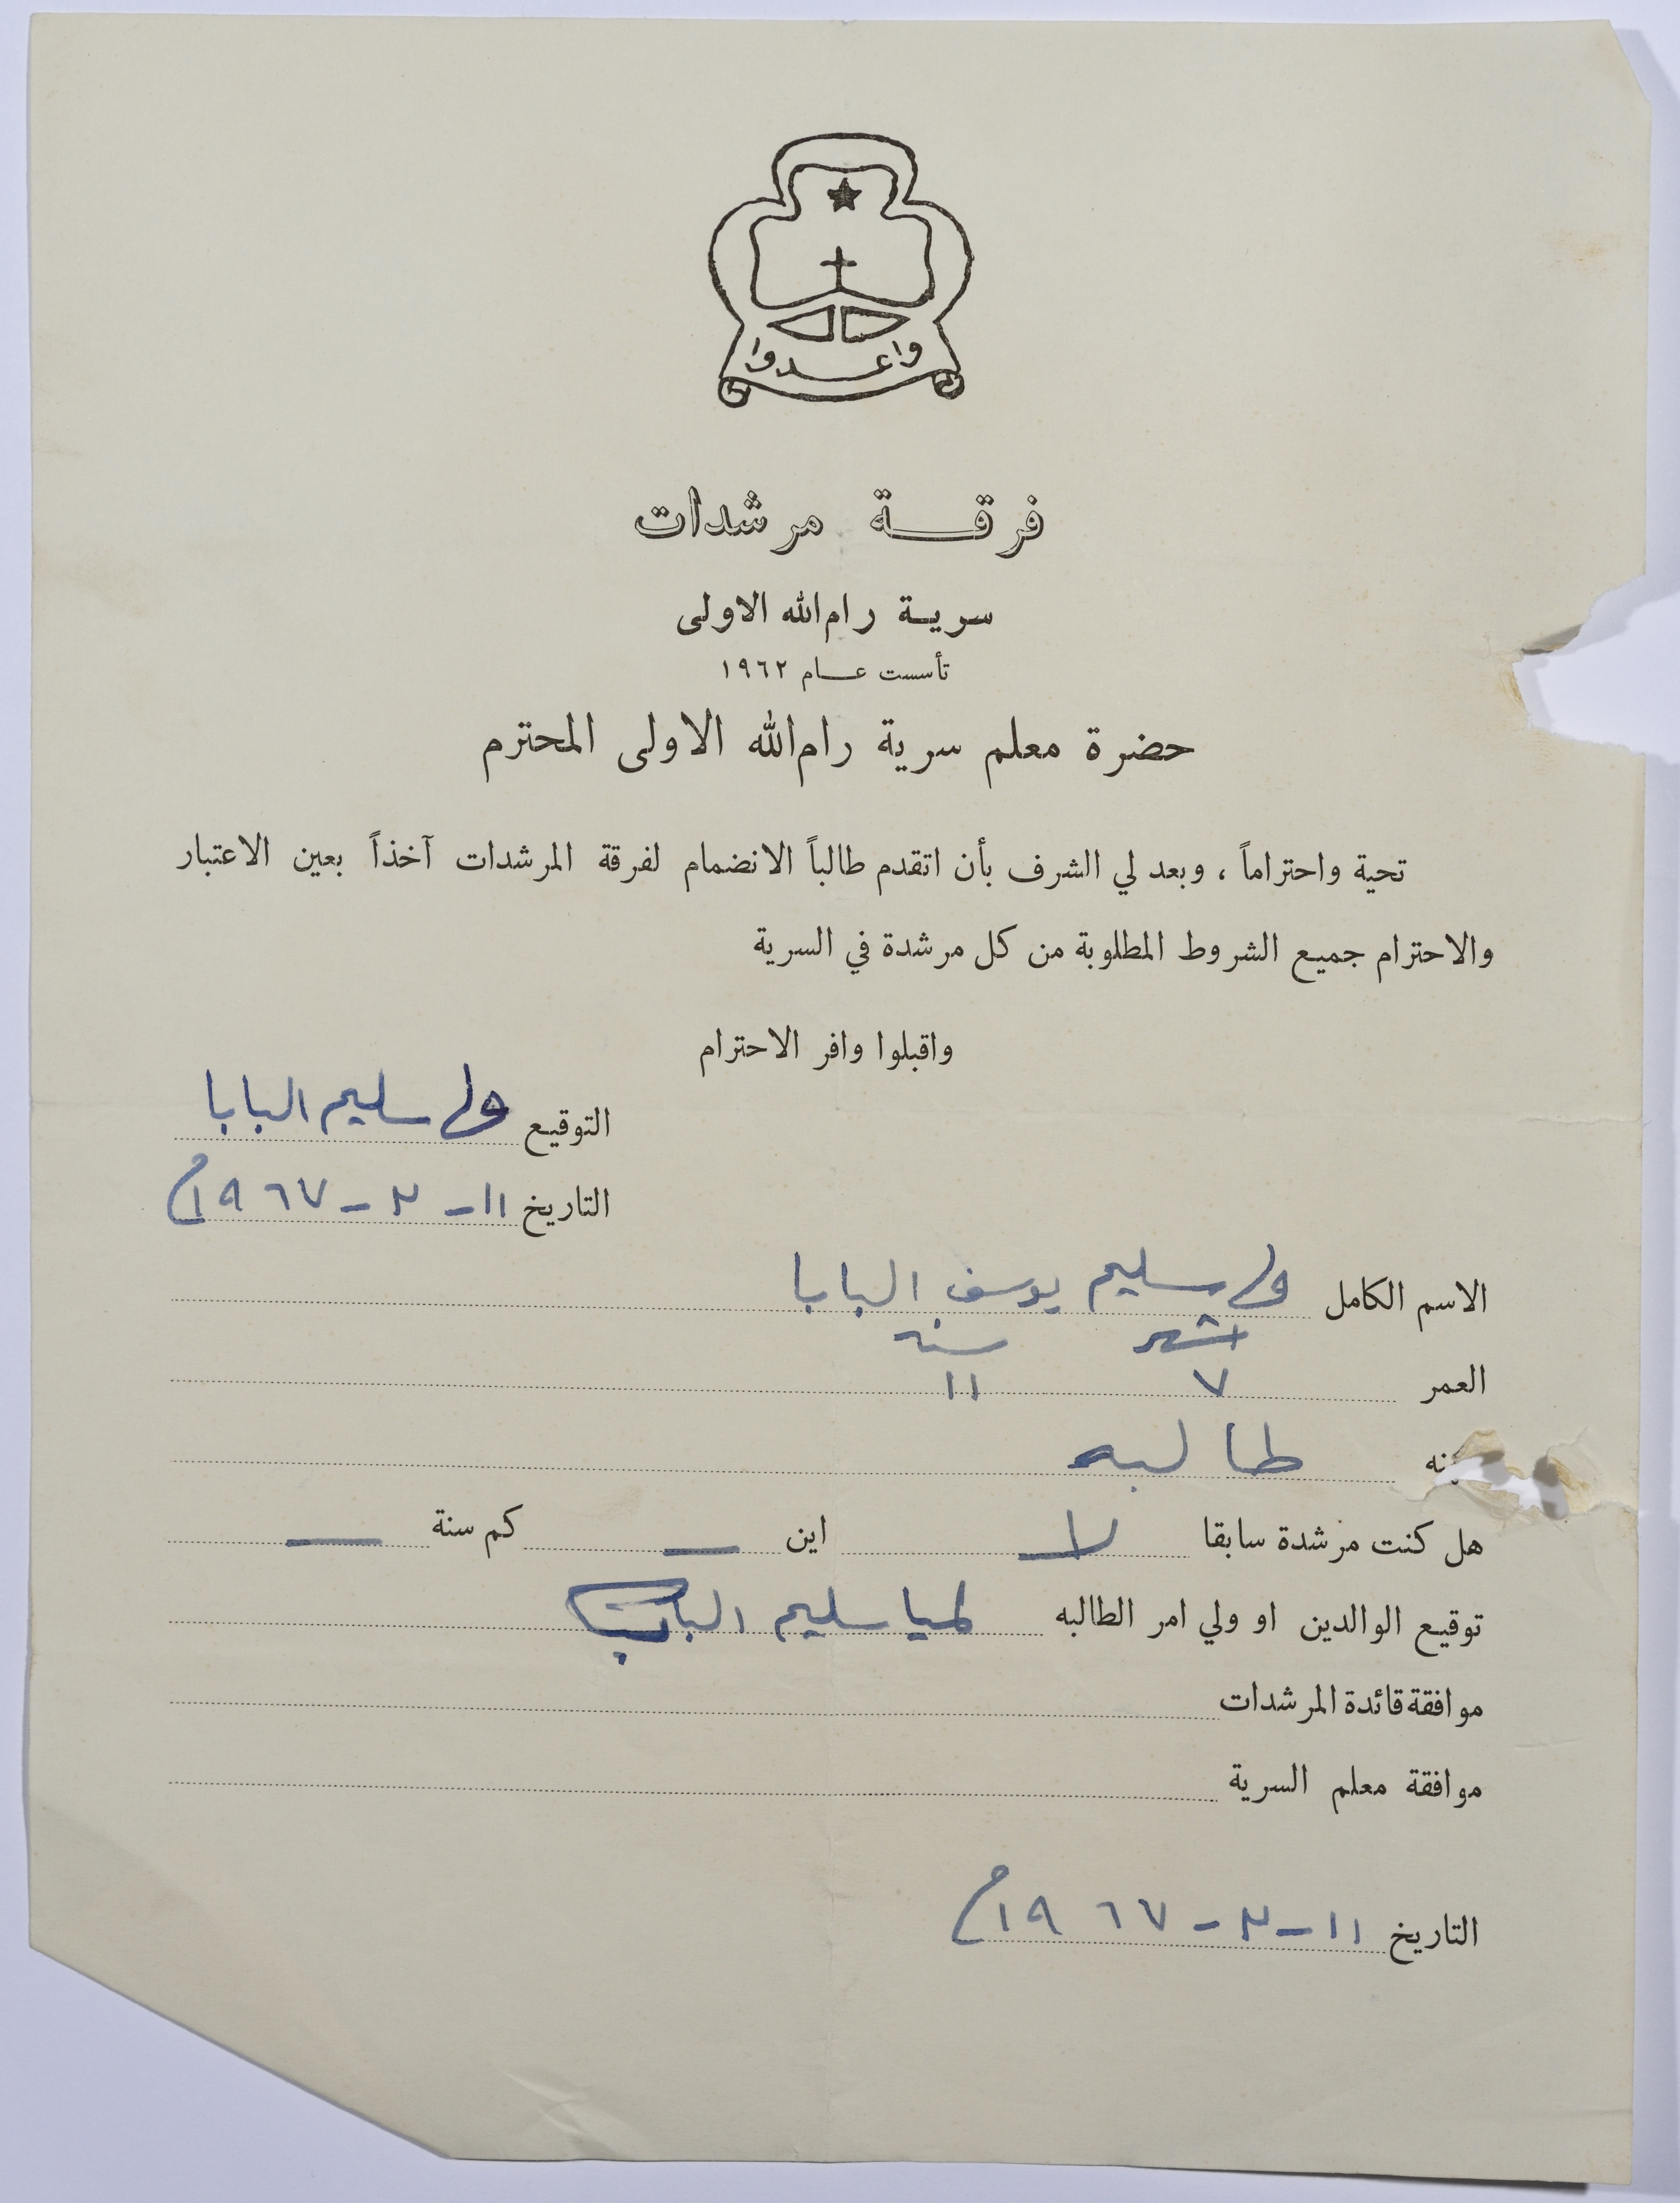 واعدوا
فرقة مرشدات
سرية رام الله الاولى
تأسست عام ١٩٦٢
حضرة معلم سرية رام الله الاولى المحترم
تحية واحتراماً ، وبعد لي الشرف بأن اتقدم طالباً الانضمام لفرقة المرشدات آخذاً بعين الاعتبار
والاحترام جميع الشروط المطلوبة من كل مرشدة في السرية
واقبلوا وافر الاحترام
التوقيع سليم البابا
التاريخ ١١ - ٢ - ١٩٦٧م
الاسم الكامل سليم يوسف البابا
اشهر سنه
العمر ٧ ١١
طالبه
هل كنت مرشدة سابقا لا اين — كم سنة —
توقيع الوالدين او ولي امر الطالبه لميا سليم البابا
موافقة قائدة المرشدات
موافقة معلم السرية
التاريخ ١١ - ٢ - ١٩٦٧م